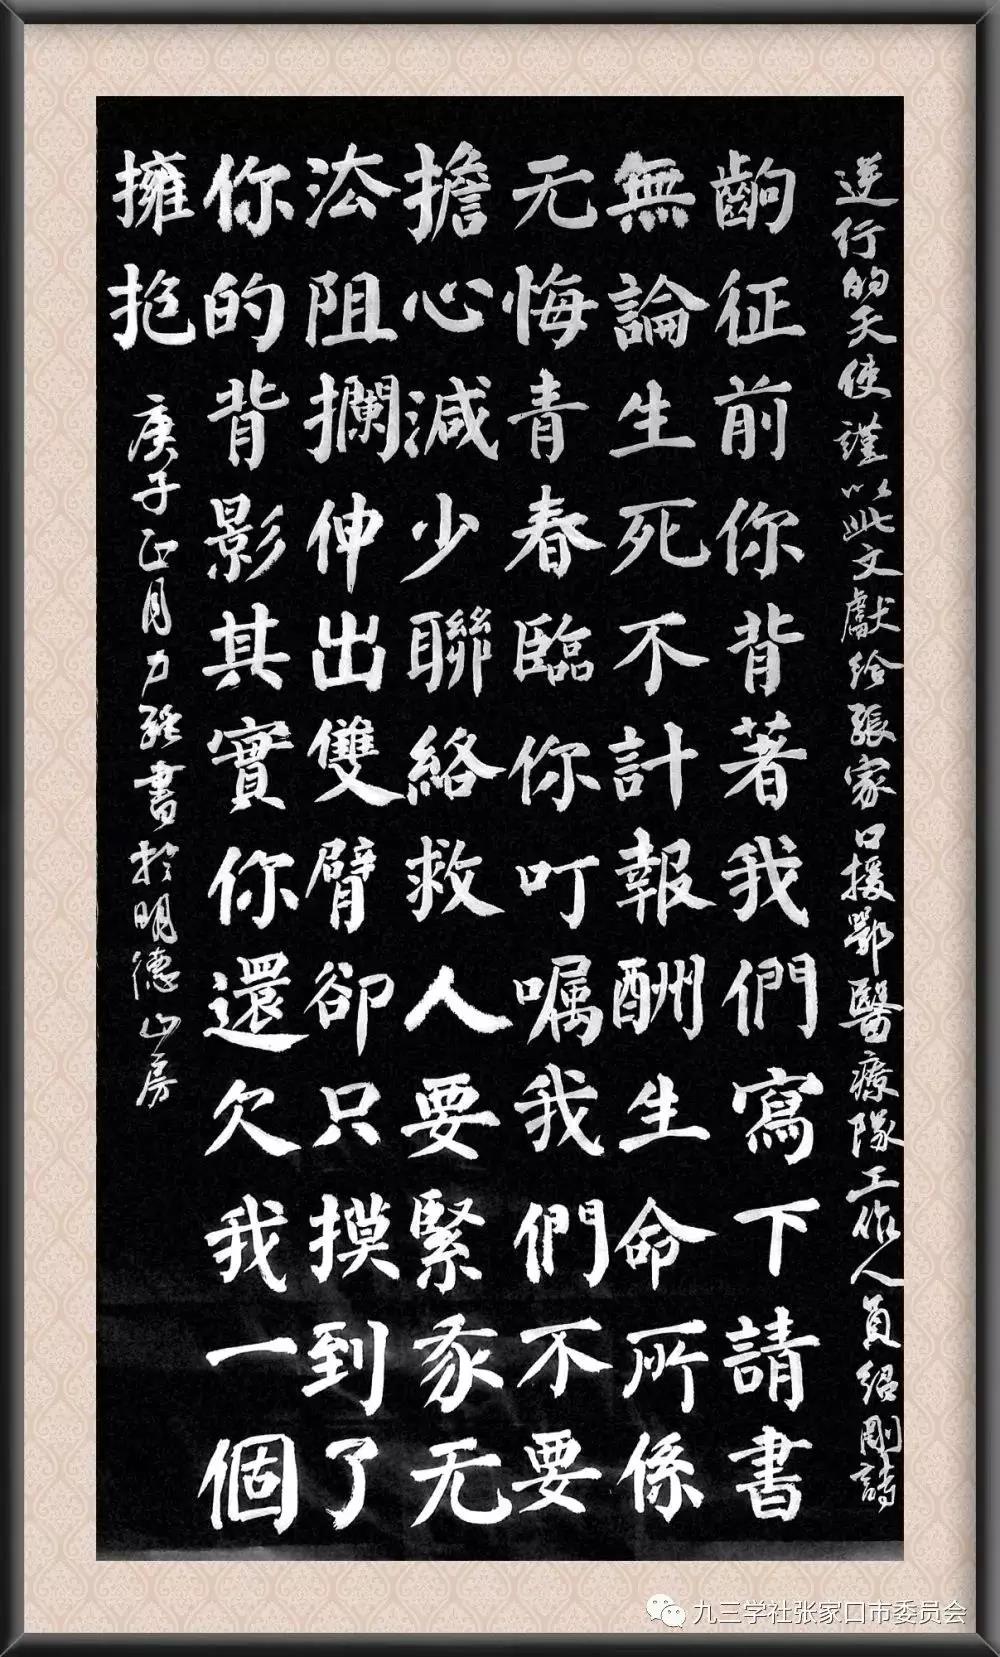 逆行的天使謹以此文獻給張家口援鄂醫療隊工作人員紹剛詩
齣征前你背著我們寫下請書
無論生死不計報酬生命所係
无悔青春臨你叮嘱我們不要
擔心減少聯絡救人要緊家无
法阻攔伸出雙臂卻只摸到了
你的背影其實你還欠我一個
擁抱
庚子正月力強書於明德山房
九三学社张家口市委员会